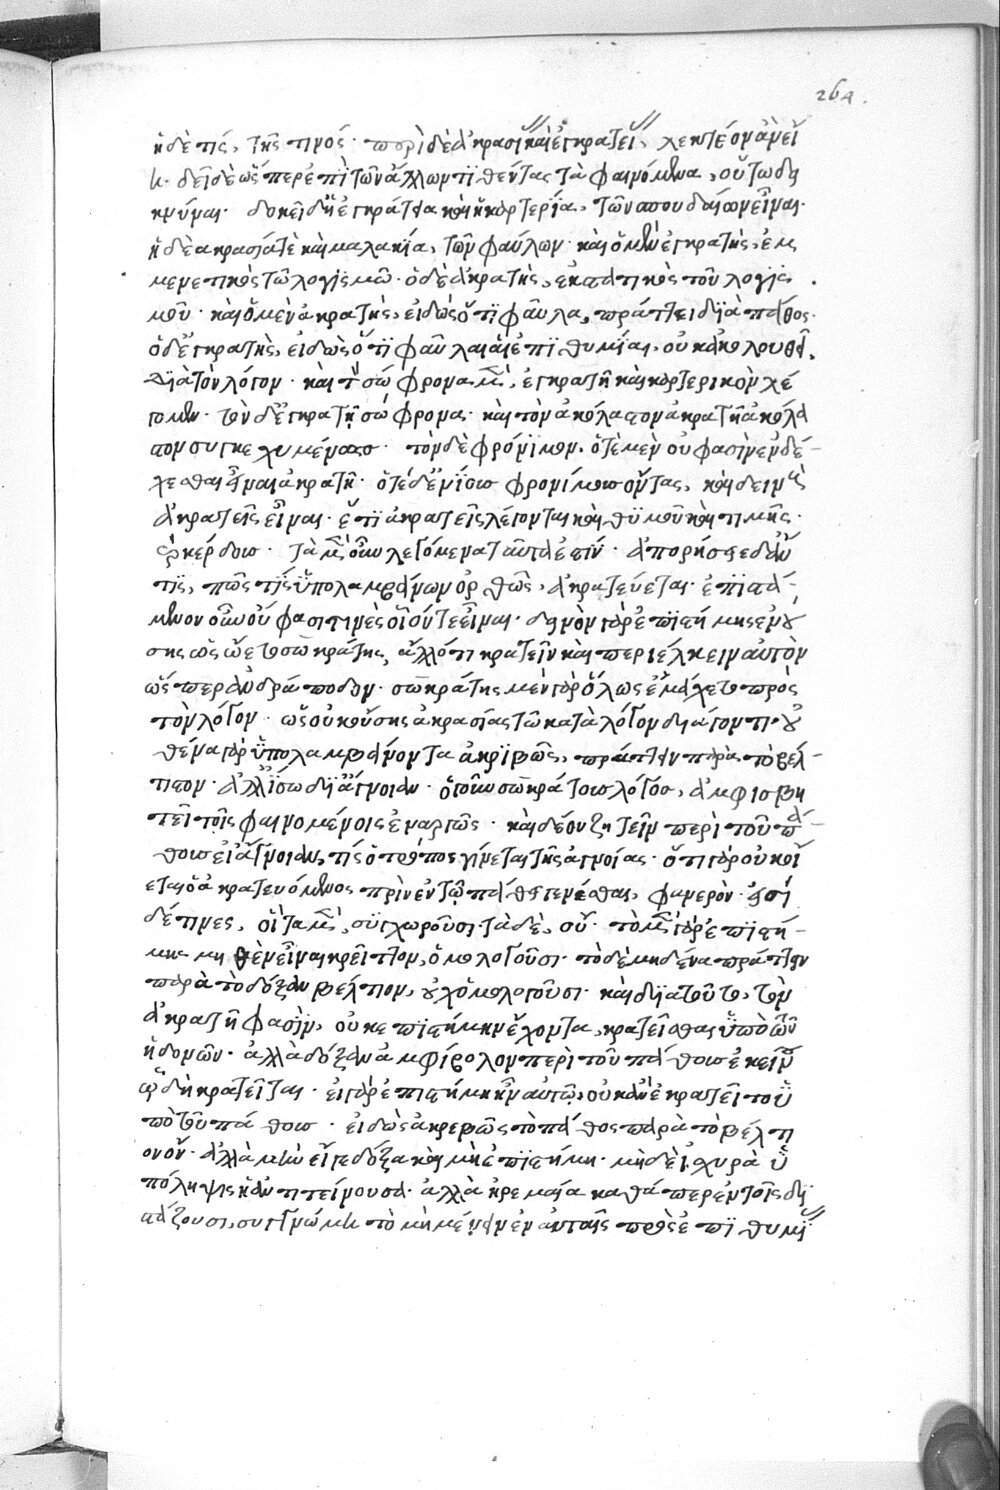 264.
ἡ δέ τις, τῆς τινός. περὶ δὲ ἀκρασίας καὶ ἐγκρατείας, λεκτέον ἀνείη
κ. δεῖ δὲ ὥσπερ ἐπὶ τῶν ἄλλων τϊθέντας τὰ φαινόμενα, οὕτω δη
δοκεῖ δὴ ἡ ἐγκράτεια καὶ ἡ καρτερία, τῶν σπουδαίων εἶναι.
ἡ δὲ ακρασία τὲ καὶ μαλακία, τῶν φαύλων. καὶ ὁ μὲν ἐγκρατὴς, ἐμ
μενετικὸς τῶ λογϊσμῶ. ὁ δὲ ἀκρατὴς, ἐκστατικὸς τοῦ λογϊσ
μοῦ. καὶ ὁ μὲν ἀκρατὴς, εἰδὼς ὅτϊ φαῦλα, πράττει δϊὰ πάθος.
ὁ δ' ἐγκρατὴς, εἰδὼς ὅτϊ φαῦλαι αἱ ἐπϊθυμίαι, οὐκ ἀκολουθεῖ,
δϊὰ τὸν λόγον. καὶ τὸν σώφρονα μὲν, ἐγκρατῆ καὶ καρτερικὸν λέ
γουσιν. τὸν δ' ἐγκρατῆ σώφρονα. καὶ τὸν ἀκόλαστον ἀκρατῆ ἀκόλα
στον συγκεχυμένως. τὸν δὲ φρόνϊμον. ὁτὲ μὲν οὐ φασὶν ἐνδέ-
χεσθαι εἶναι ἀκρατῆ. ὁτὲ δ' ἐνίους φρονίμους ὄντας, καὶ δεινοὺς
ἀκρατεῖς εἶναι. ἔτϊ ἀκρατεῖς λέγονται καὶ θϋμοῦ καὶ τιμῆς.
κέρδους. τὰ μὲν οὖν λεγόμενα ταῦτά ἐστίν. ἀπορήσειε δ' ἄν
τϊς, πῶς τίς ὑπολαμβάνων ὀρθῶς, ἀκρατεύεται. ἐπϊστά-
μενον οὖν οὔ φασι τινὲς οἷόντε εἶναι. δεινὸν γὰρ ἐπϊστήμης ἐνού
σης ὡς ὤετο σωκράτης, ἄλλό τι κρατεῖν καὶ περιέλκειν αὐτὸν
ὥσπερ ἀνδράποδον. σωκράτης μὲν γὰρ ὅλως ἐμάχετο πρὸς
τὸν λόγον. ὡς οὐκ οὔσης ἀκρασίας τῶ κατὰ λόγον διάγοντι. οὐ
θένα γὰρ ὑπολαμβάνοντα ἀκρϊβῶς, πράττειν παρὰ τὸ βέλ-
τιστον. ἀλλ' ἴσως δϊ' ἄγνοιαν. ὁ γοῦν σωκράτους λόγος, ἀμφισβη
τεῖ τοῖς φαινομένοις ἐναργῶς. καὶ δέον ζητεῖν περὶ τοῦ πά-
θους εἰ δϊ' ἄγνοιαν, τίς ὁ τρόπος γίνεται τῆς ἀγνοίας. ὅτι γὰρ οὐκ οἴ
εται ὁ ἀκρατευόμενος πρὶν ἐν τῶ πάθει γενέσθαι, φανερὸν. εἰσὶ
δέ τινες, οἳ τὰ μὲν, συγχωροῦσι. τὰ δὲ, οὔ. τὸ μὲν γὰρ ἐπϊστή-
μης μηθὲν εἶναι κρεῖττον, ὁμολογοῦσι. τὸ δὲ μηδένα πράττειν
παρὰ τὸ δόξαν βέλτιον, οὐχ ὁμολογοῦσι. καὶ δϊὰ τοῦτο, τὸν
ἀκρατῆ φασϊν, οὐκ ἐπϊστήμην ἔχοντα, κρατεῖσθαι ὑπὸ τῶν
ἡδονῶν. ἀλλὰ δόξαν ἀμφίβολον περὶ τοῦ πάθους ἐκείνου
ὧ δὴ κρατεῖται. εἰ γὰρ ἐπιστήμη ἦν αὐτῶ, οὐκ ἂν ἐκρατεῖτο ὑ
πὸ τοῦ πάθους. εἰδὼς ἀκριβῶς τὸ πάθος παρὰ τὸ βέλτι
ον ὄν. ἀλλὰ μὴν εἴγε δόξα καὶ μὴ ἐπϊστήμη. μηδὲ ἰσχυρὰ ὑ
πόληψις ἡ ἀντιτείνουσα. ἀλλὰ ἠρεμαία καθάπερ ἐν τοῖς δϊ
στάζουσι, συγγνώμη τὸ μὴ μένειν ἐν αὐταῖς πρὸς ἐπϊθυμϊ